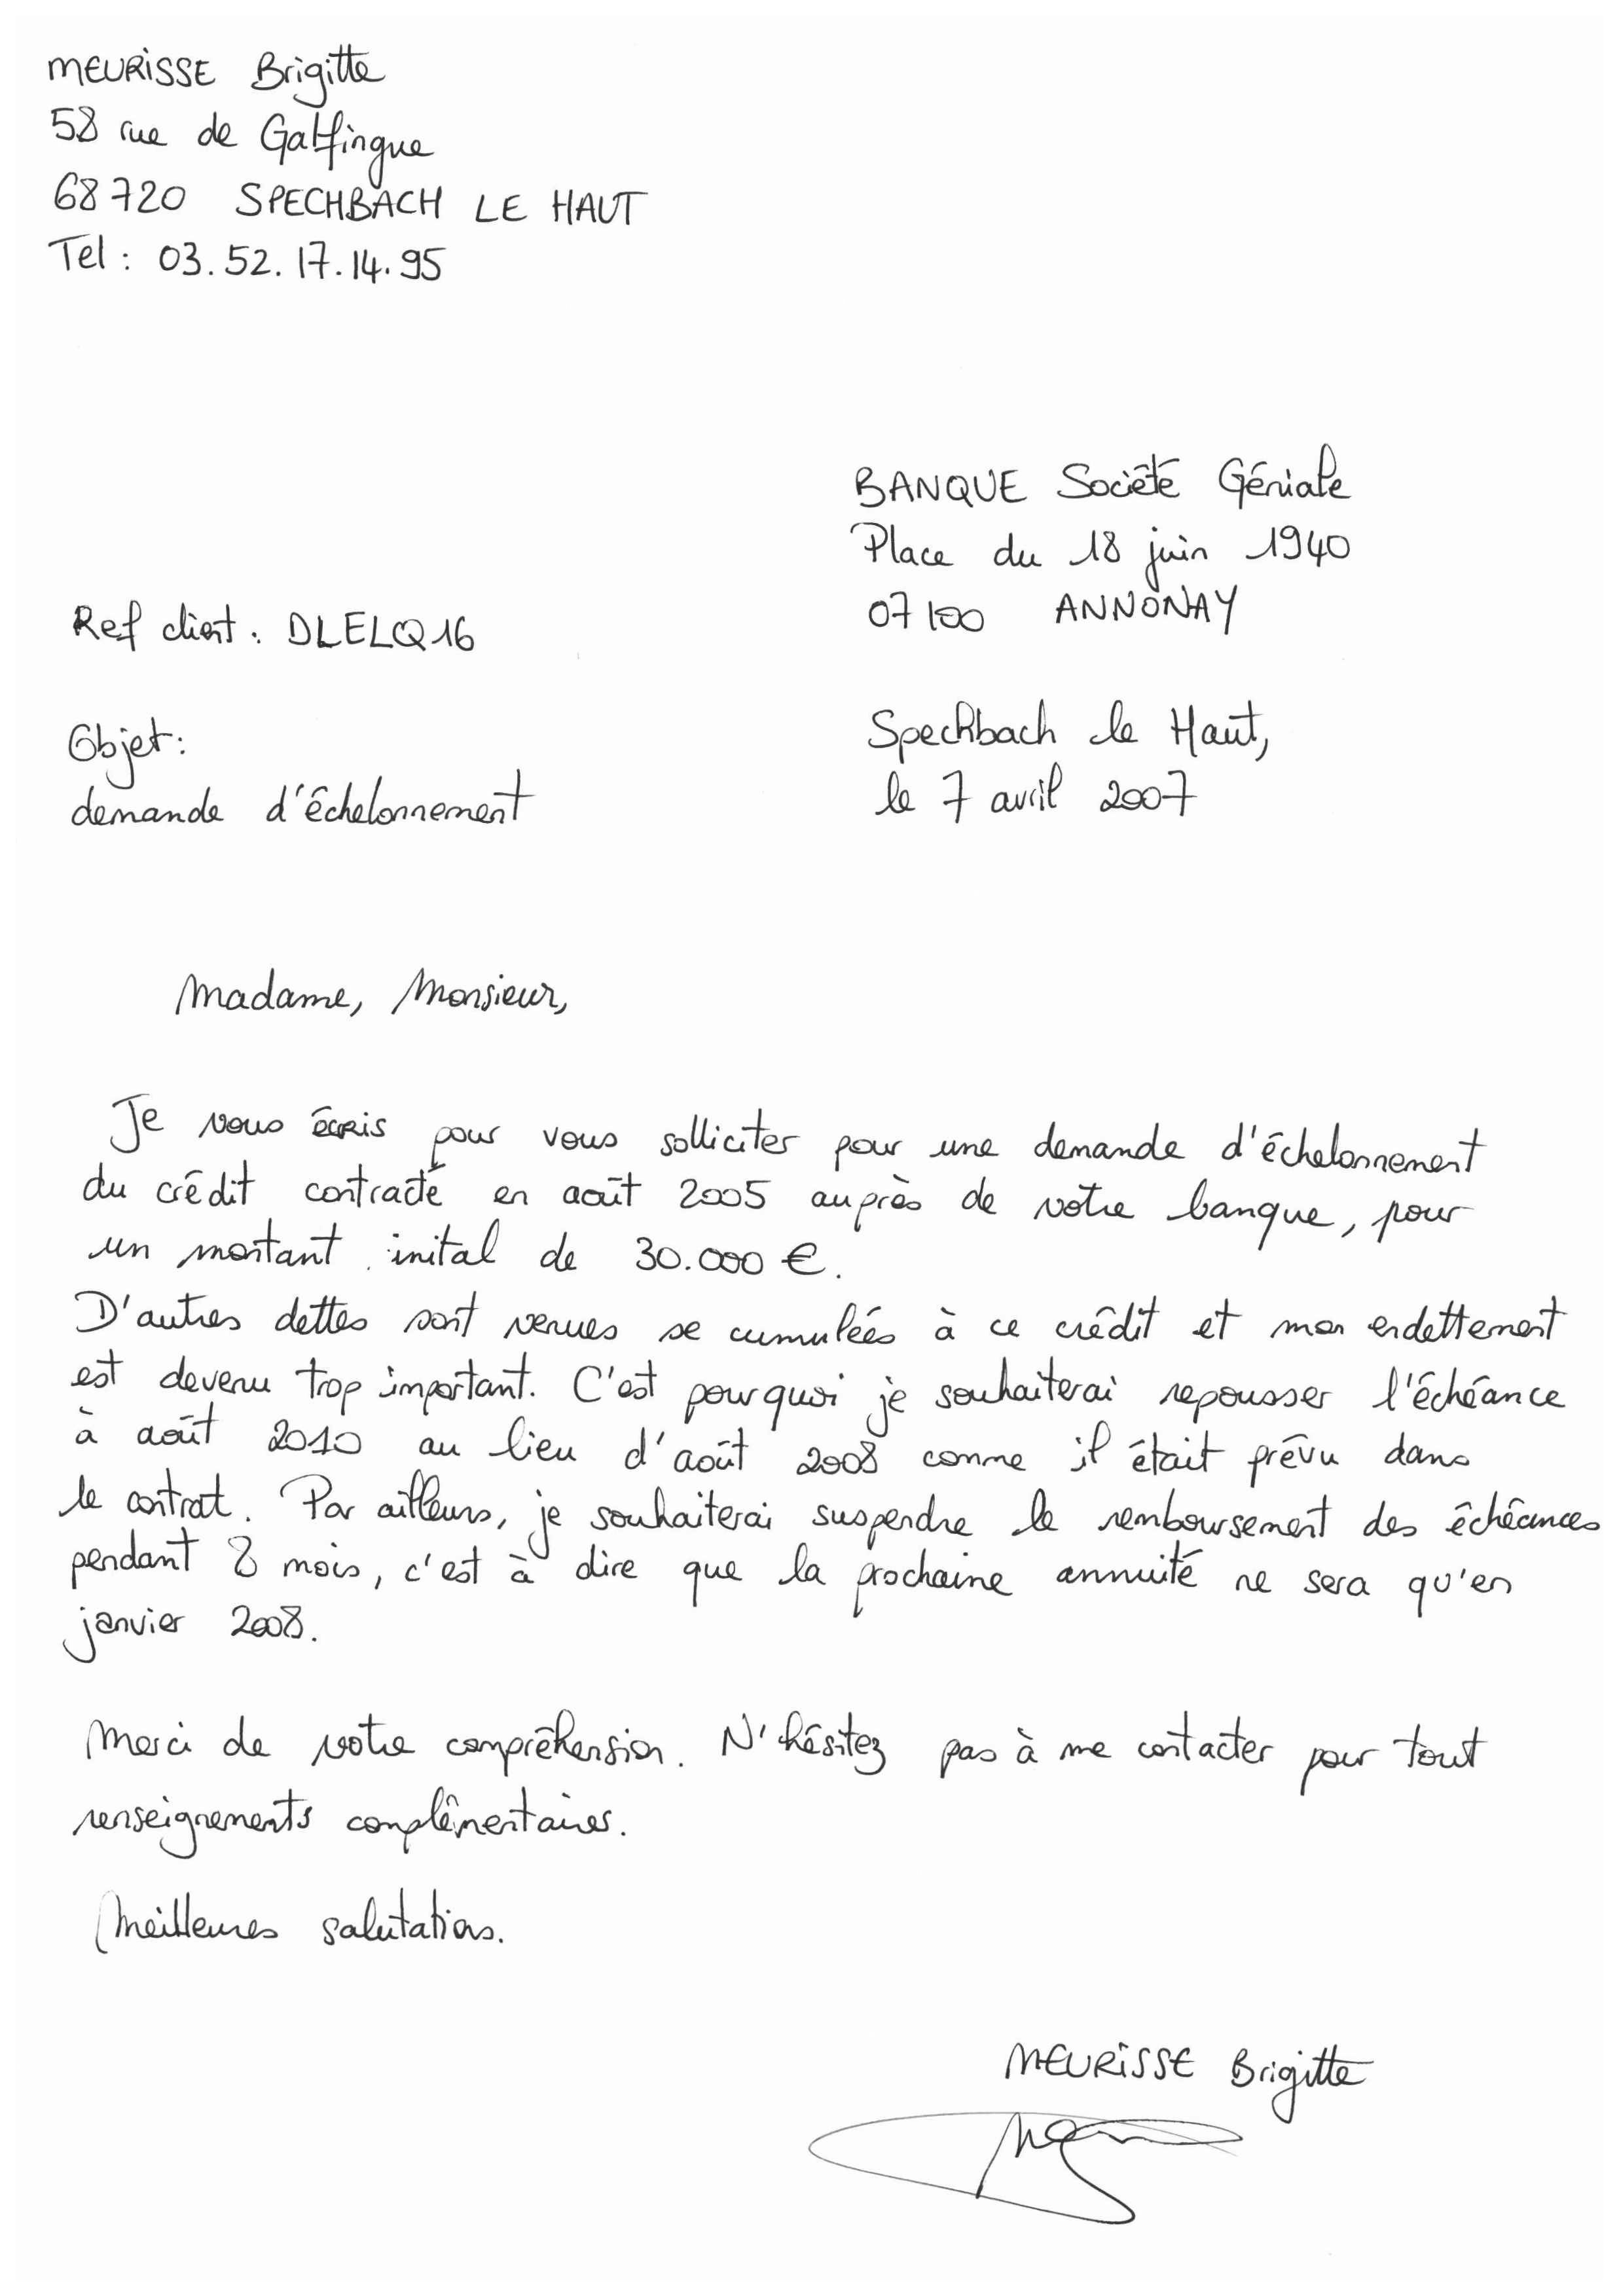 MEURISSE Brigitte
58 rue de Galfingue
68720 SPECHBACH LE HAUT
Tel : 03.52.17.14.95
BANQUE Société Géniale
Place du 18 juin 1940
07100 ANNONAY
Ref client : DLELCQ16
Spechbach le Haut,
le 7 avril 2007
Objet :
demande d'échelonnement
Madame, Monsieur,
Je vous écris pour vous solliciter pour une demande d'échelonnement
du crédit contracté en août 2005 auprès de votre banque, pour
un montant inital de 30.000 €.
D'autres dettes sont venues se cumulées à ce crédit et mon endettement
est devenu trop important. C'est pourquoi je souhaiterai repousser l'échéance
à août 2010 au lieu d'août 2008 comme il était prévu dans
le contrat. Par ailleurs, je souhaiterai suspendre le remboursement des échéances
pendant 8 mois, c'est à dire que la prochaine annuité ne sera qu'en
janvier 2008.
Merci de votre compréhension. N'hésitez pas à me contacter pour tout
renseignements complémentaires.
Meilleures salutations.
MEURISSE Brigitte